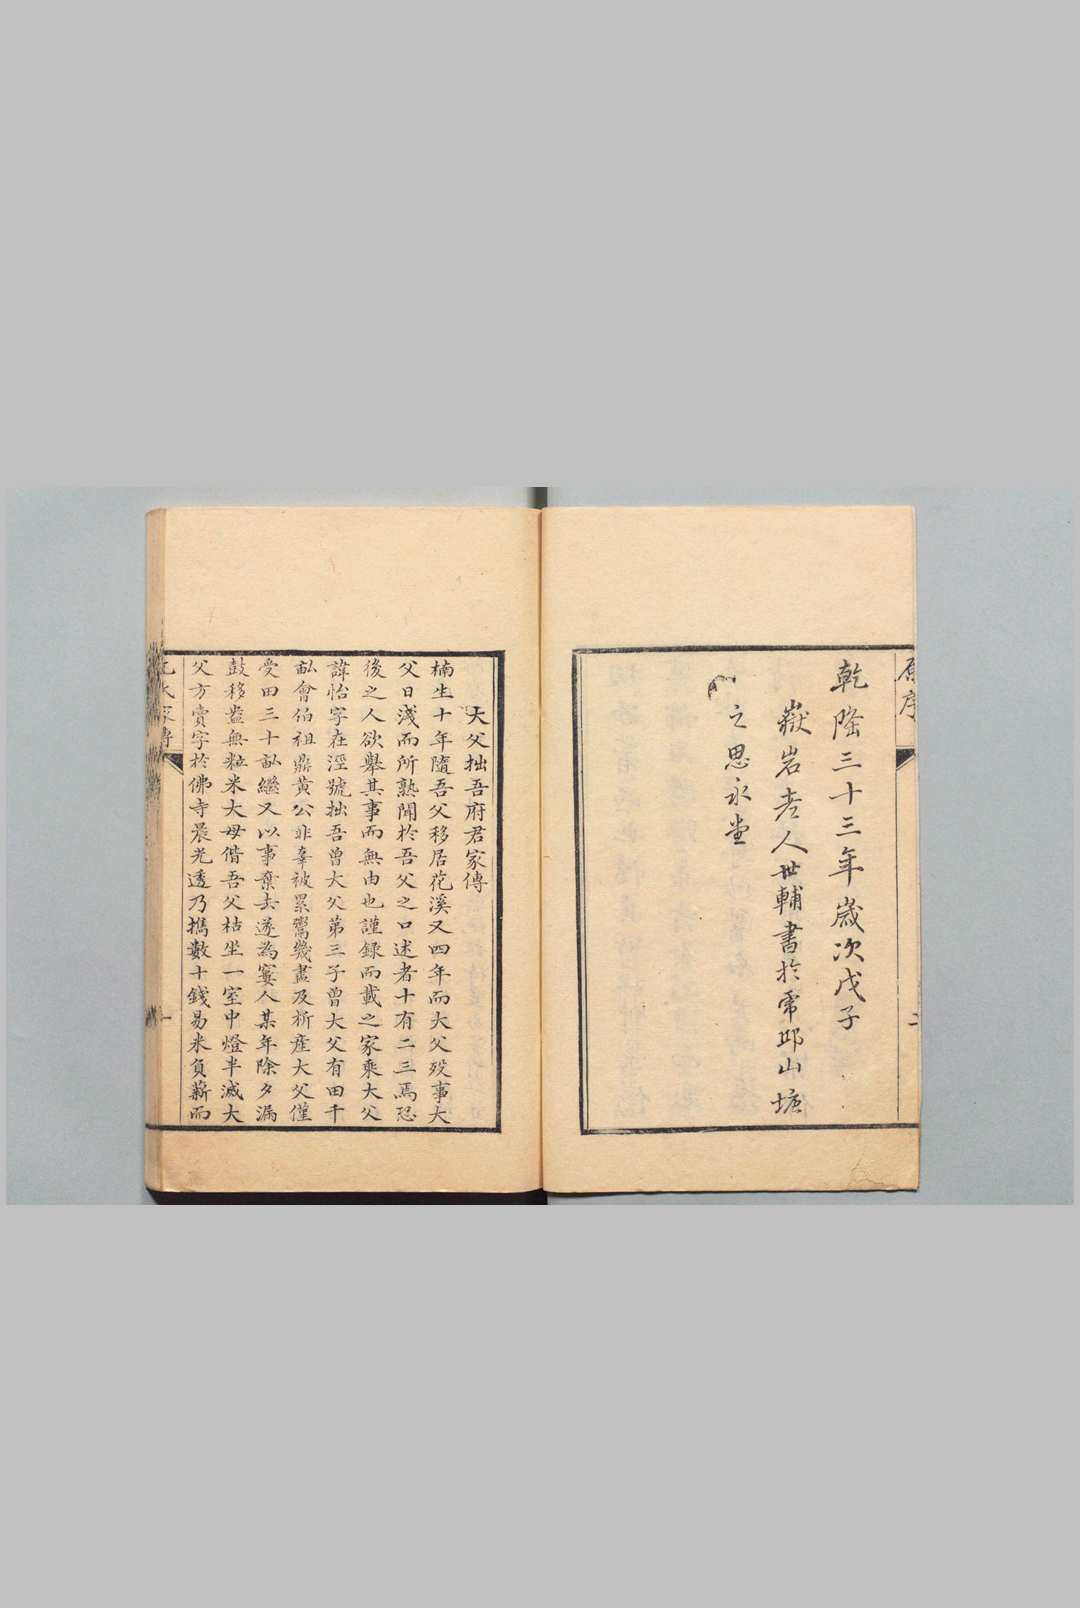 原序
二
乾隆三十三年歲次戊子
嶽岩老人世輔書於虎邱山塘
之思永堂
大父拙吾府君家傳
楠生十年隨吾父移居花溪又四年而大父歿事大
父日淺而所熟聞於吾父之口述者十有二三焉恐
後之人欲舉其事而無由也謹録而載之家乘大父
諱怡字在涇號拙吾曾大父第三子曾大父有田千
畝會伯祖鼎黃公非辜被累鬻幾盡及析產大父僅
受田三十畝繼又以事棄去遂為窶人某年除夕漏
鼓移盎無粒米大母偕吾父枯坐一室中燈半滅大
父方賣字於佛寺晨光透乃攜數十錢易米負薪而
家傳
一